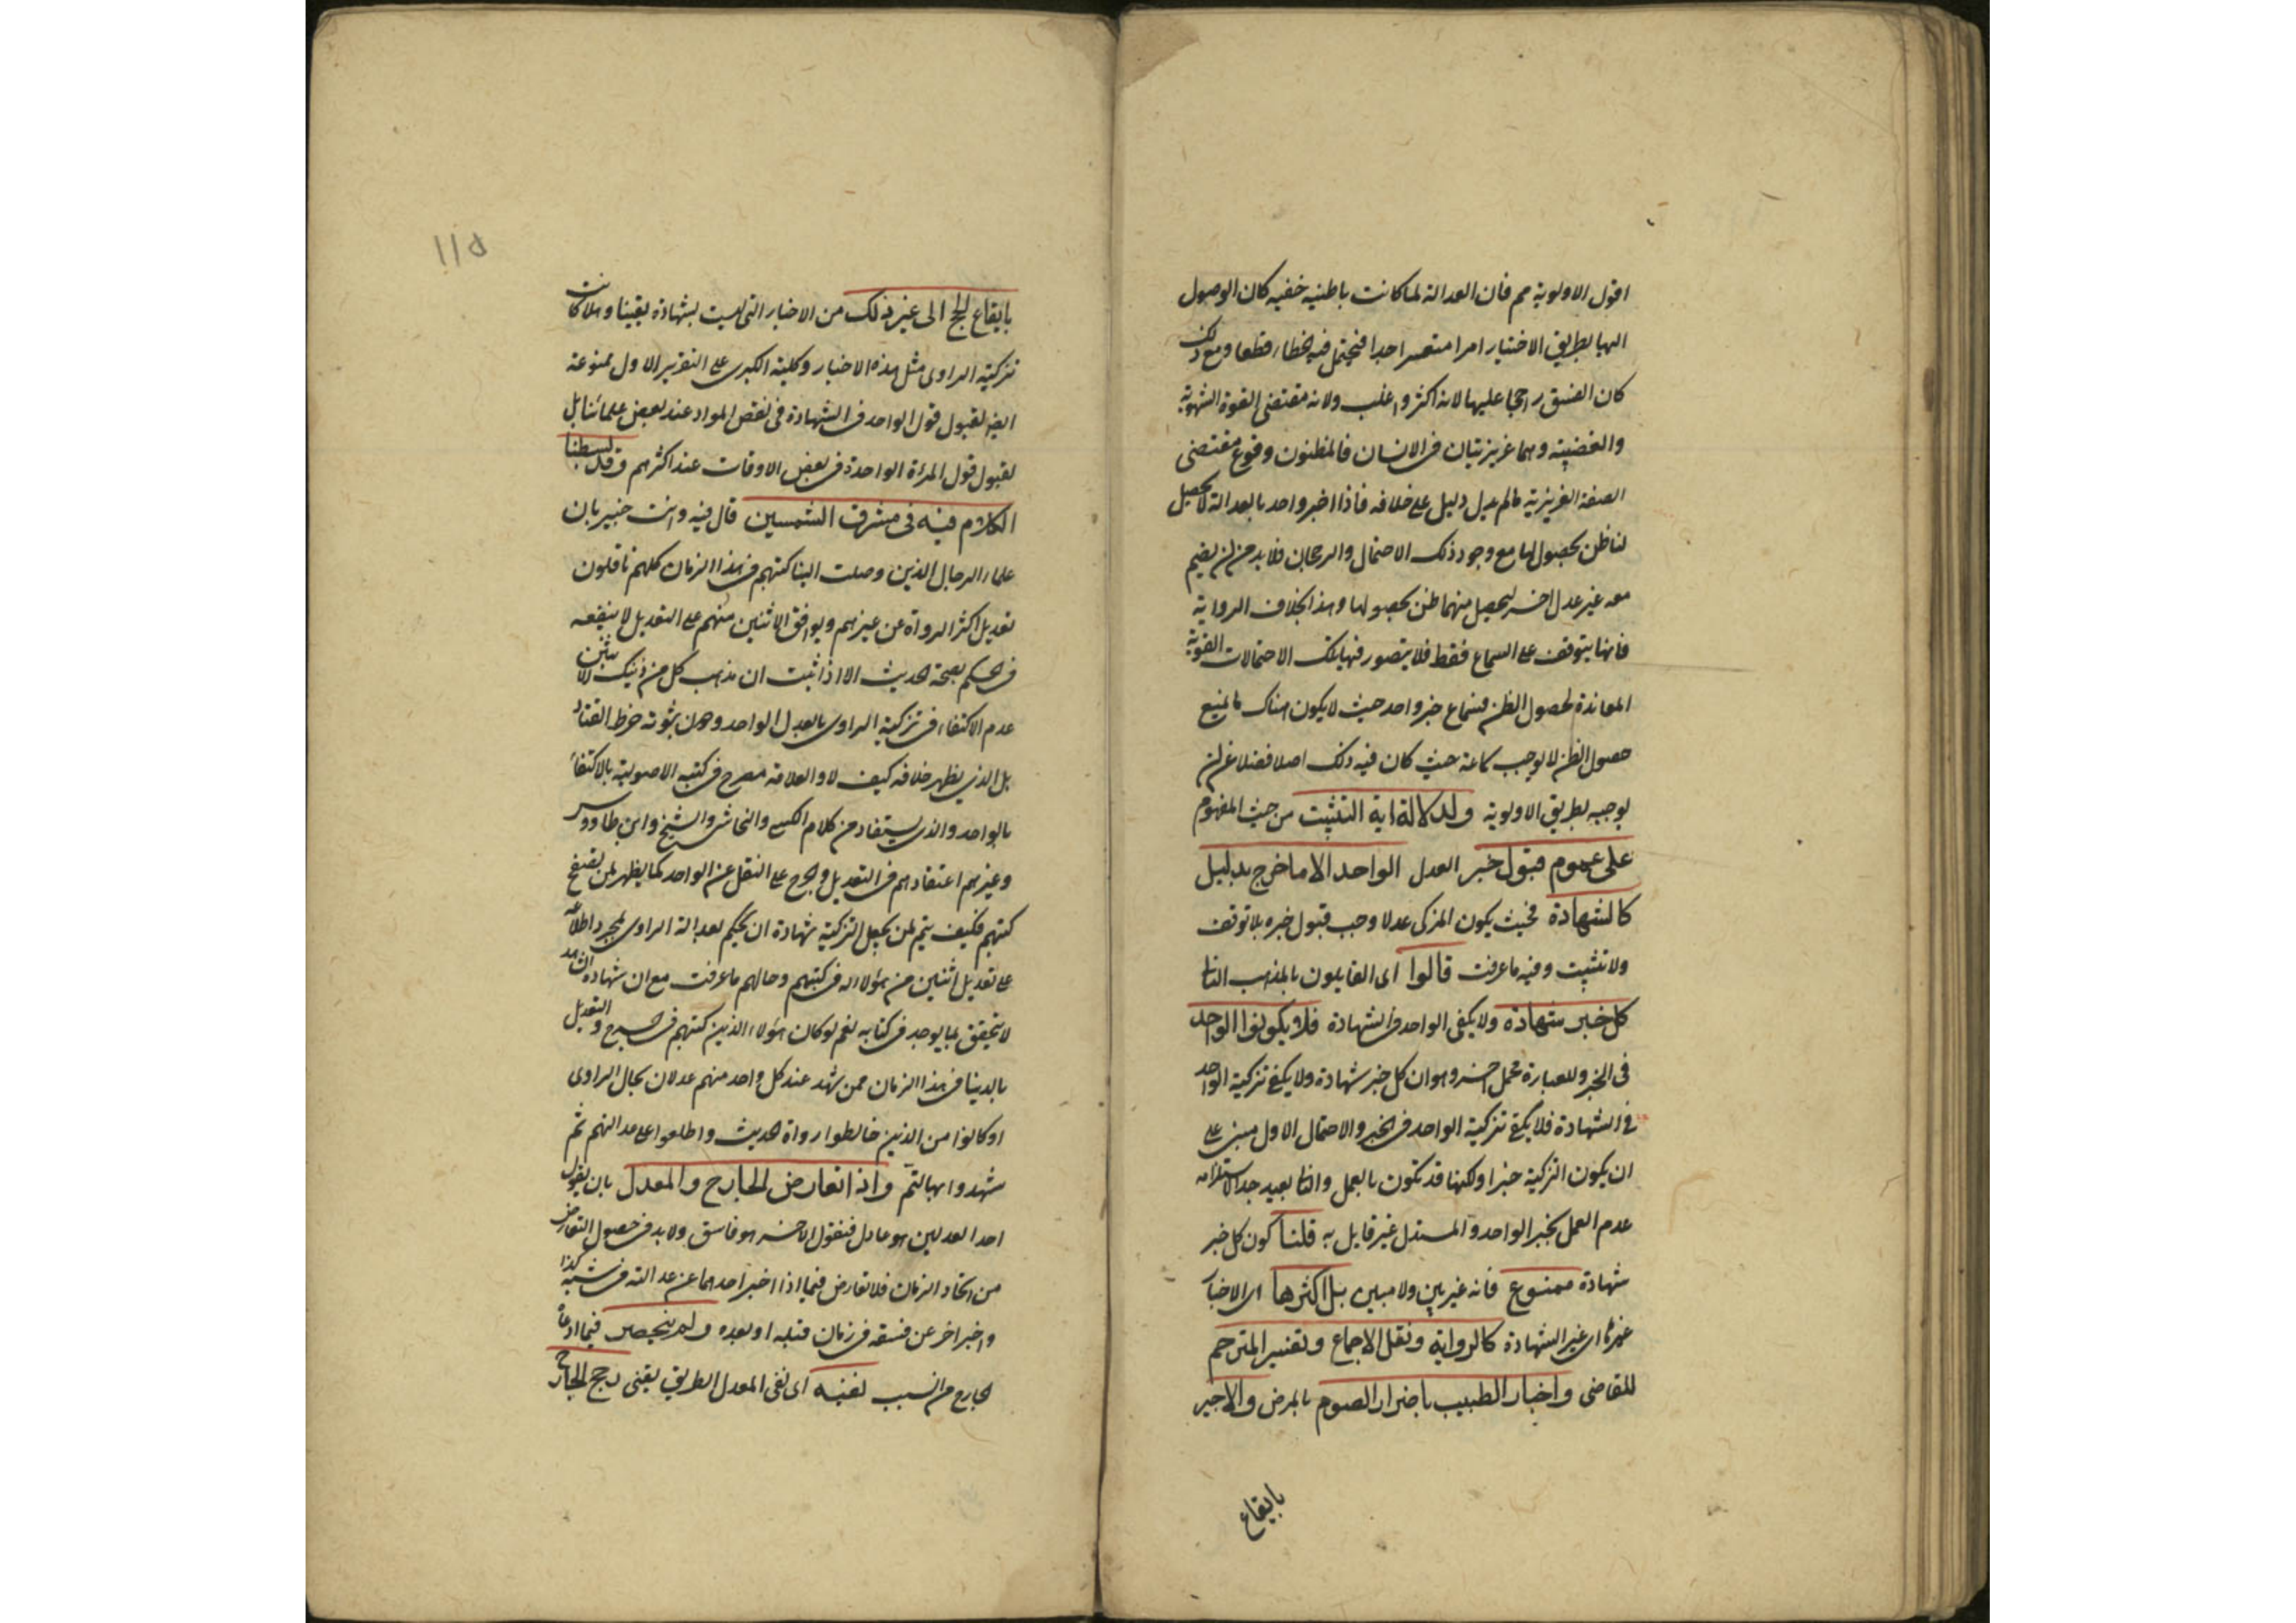 اقول الاولوية مم فان العدالة لما كانت باطنية خفيه كان الوصول
اليها بطريق الاختبار امرا متعسرا جدا فيحتمل فيه الخطاء قطعا ومع ذلك
كان الفسق راجحا عليها لانه اكثر واغلب ولانه مقتضى القوة الشهوية
والغضبية وهما غريزيتان فى الانسان فالمظنون وقوع مقتضى
الصفة الغريزية مالم يدل دليل على خلافه فاذا اخبر واحد بالعدالة لا يحصل
لنا ظن بحصولها مع وجود ذلك الاحتمال والرجحان فلا بد من ان يضم
معه غير عدل اخر ليحصل منهما ظن بحصولها وهذا بخلاف الرواية
فانها يتوقف على السماع فقط فلا يتصور فيها تلك الاحتمالات القوية
المعاندة لحصول الظن فسماع خبر واحد حيث لا يكون هناك ما يمنع
حصول الظن لا يوجب سماعه حيث كان فيه ذلك اصلا فضلا عن ان
يوجبه بطريق الاولوية ولدلالة اية التثبت من حيث المفهوم
على عموم قبول خبر العدل الواحد الا ما خرج بدليل
كالشهادة فحيث يكون المزكى عدلا وجب قبول خبره بلا توقف
ولا تثبت وفيه ما عرفت قالوا اى القايلون بالمذهب الثانى
كل خبر شهادة ولا يكفى الواحد فى الشهادة فلا يكونوا الواحد
فى الخبر وللعبارة محمل اخر وهو ان كل خبر شهادة ولا يكفى تزكية الواحد
فى الشهادة فلا يكفى تزكية الواحد فى الخبر والاحتمال الاول مبنى على
ان يكون التزكية خبرا ولكنها قد تكون بالعمل والثانى بعيد جدا لاستلزامه
عدم العمل بخبر الواحد والمستدل غير قايل به قلنا كون كل خبر
شهادة ممنوع فانه غير بين ولا مبين بل اكثرها اى الاخبار
غيرها اى غير الشهادة كالرواية ونقل الاجماع وتفسير المترجم
للقاضى واخبار الطبيب باضرار الصوم بالمرض والاجير
بايقاع
١١٥
بايقاع الحج الى غير ذلك من الاخبار التى ليست بشهادة يقينا وهلا كانت
تزكية الراوى مثل هذه الاخبار وكلية الكبرى على التقرير الاول ممنوعة
ايضا لقبول قول الواحد فى الشهادة فى بعض المواد عند بعض علمائنا بل
لقبول قول المرأة الواحدة فى بعض الاوقات عند اكثرهم وقد بسطنا
الكلام فيه فى مشرق الشمسين قال فيه وانت خبير بان
علماء الرجال الذين وصلت الينا كتبهم فى هذا الزمان كلهم ناقلون
تعديل اكثر الرواة عن غيرهم وبوافق الاثنين منهم على التعديل لا ينفعه
فى الحكم بصحة الحديث الا اذا ثبت ان مذهب كل من ذينك الاثنين
عدم الاكتفاء فى تزكية الراوى بالعدل الواحد ودون ثبوته خرط القتاد
بل الذى يظهر خلافه كيف لا والعلامة مصرح فى كتبه الاصولية بالاكتفاء
بالواحد والذى يستفاد من كلام الكشى والنجاشى والشيخ وابن طاووس
وغيرهم اعتقادهم فى التعديل والجرح على النقل عن الواحد كما يظهر لمن يتصفح
كتبهم فكيف يتم لمن يجعل التزكية شهادة ان يحكم بعدالة الراوى بمجرد اطلاعه
على تعديل اثنين من هؤلاء له فى كتبهم وحالهم ما عرفت مع ان شهادة الشاهد
لا يتحقق بما يوجد فى كتابه نعم لو كان هؤلاء الذين كتبهم فى الجرح والتعديل
بايدينا فى هذا الزمان ممن شهد عند كل واحد منهم عدلان بحال الراوى
او كانوا من الذين خالطوا رواة الحديث واطلعوا على عدالتهم ثم
شهدوا بها لتم واذا تعارض الجارح والمعدل بان يقول
احد العدلين هو عادل فيقول الاخر هو فاسق ولا بد فى حصول التعارض
من اتحاد الزمان فلا تعارض فيما اذا اخبر احدهما عن عدالته فى شهر كذا
واخبر اخر عن فسقه فى زمان قبله او بعده ولم ينحصر فيما ادعاه
الجارح من السبب نفيه اى نفى المعدل الطريق يقينى رجح الجارح